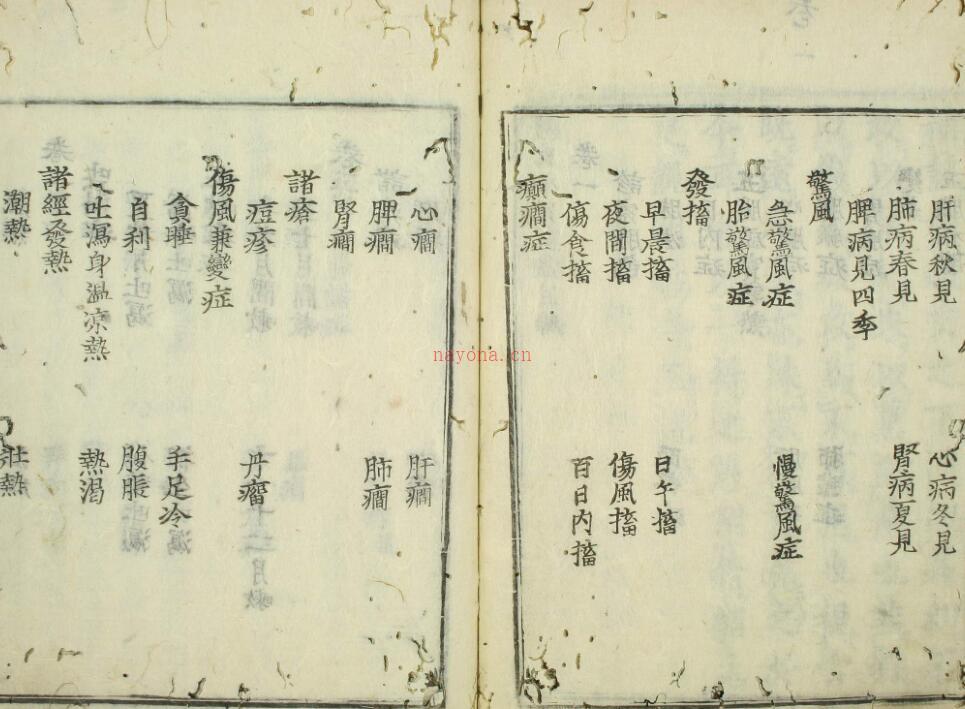 肝病秋見 心病冬見
肺病春見 腎病夏見
脾病見四季
驚風
急驚風症 慢驚風症
胎驚風症
發搐
早晨搐 日午搐
夜間搐 傷風搐
傷食搐 百日內搐
癲癎症
心癎 肝癎
脾癎 肺癎
腎癎
諸瘡
痘疹 丹瘤
傷風兼變症
貪睡 手足冷
自利 腹脹
吐瀉身溫凉熱 熱渴
諸經發熱
潮熱 壯熱
nayona.cn